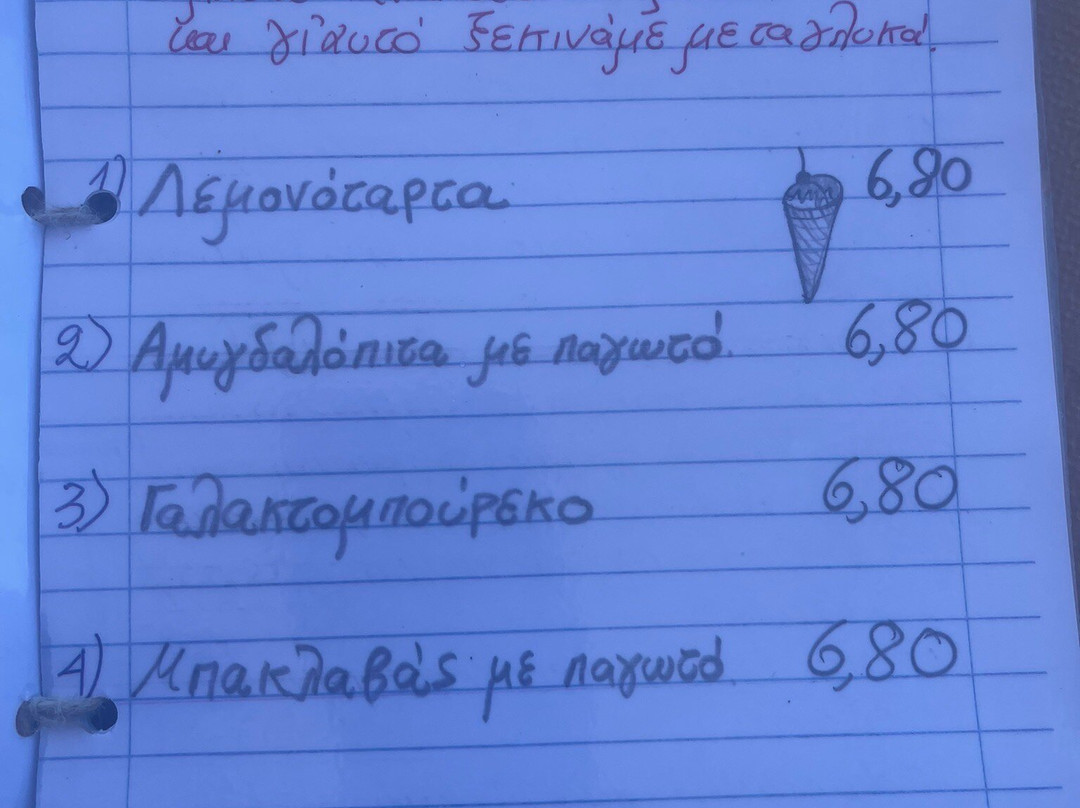 και γι'αυτό ξεκινάμε με τα γλυκά!
1) Λεμονόταρτα 6,80
2) Αμυγδαλόπιτα με παγωτό. 6,80
3) Γαλακτομπούρεκο 6,80
4) Μπακλαβάς με παγωτό 6,80